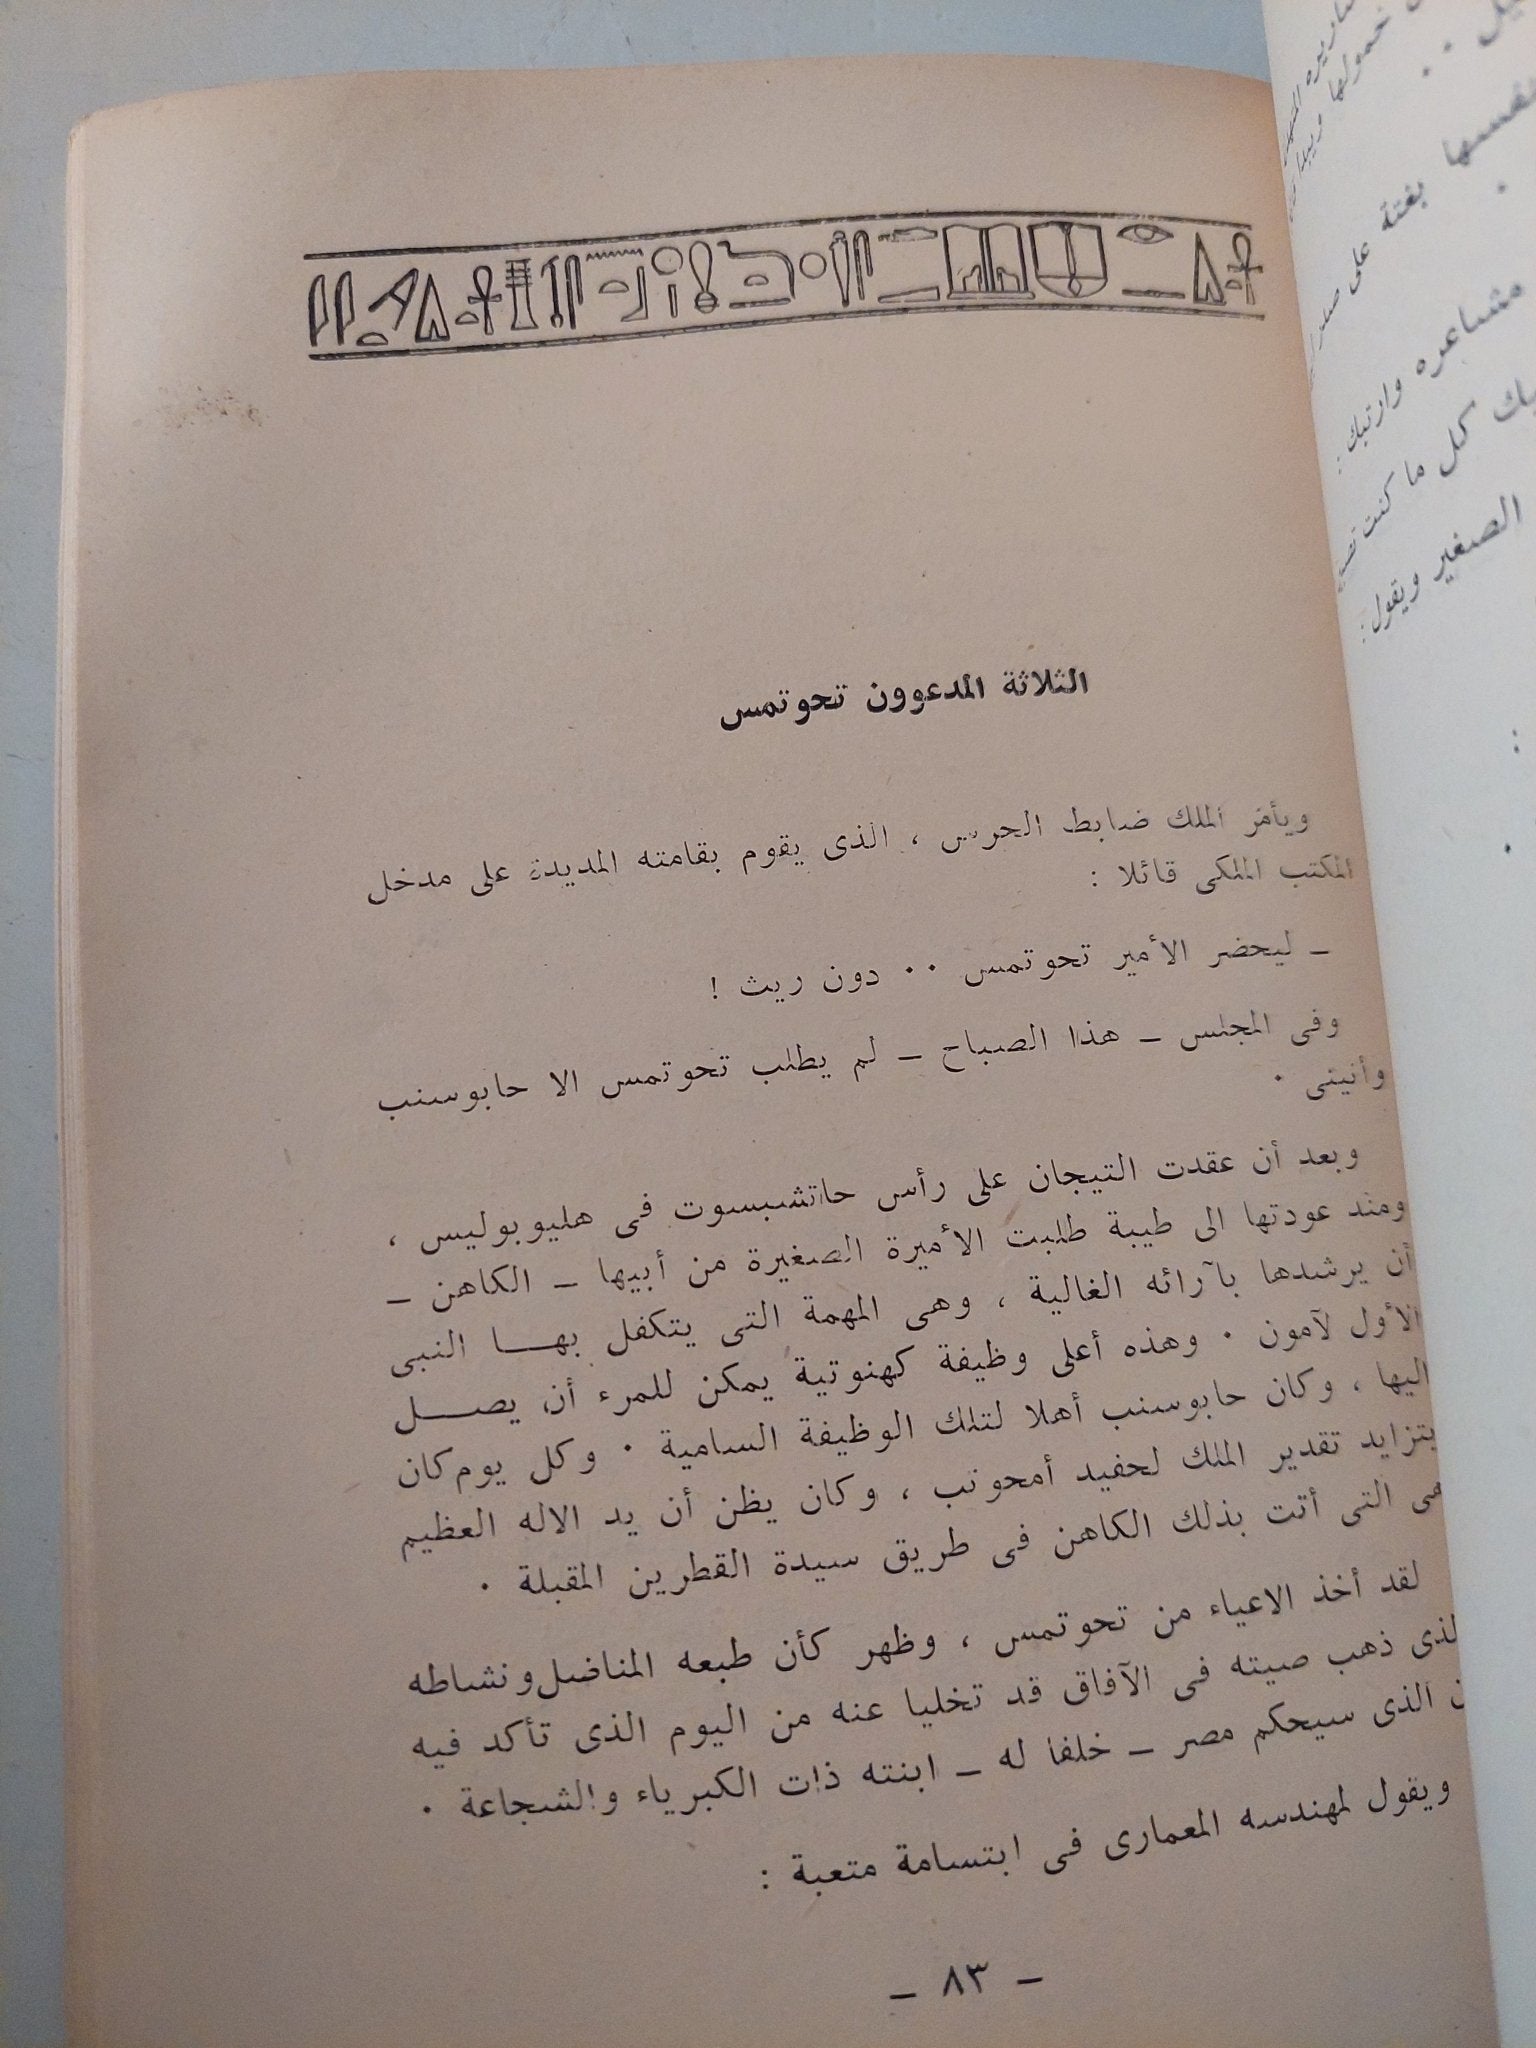 الثلاثة المدعوون تحوتمس
ويأمر الملك ضابط الحرس ، الذى يقوم بقامته المديدة على مدخل
المكتب الملكى قائلا :
ـ ليحضر الأمير تحوتمس ٠٠ دون ريث !
وفى المجلس ـ هذا الصباح ـ لم يطلب تحوتمس الا حابوسنب
وأنينى ٠
وبعد أن عقدت التيجان على رأس حاتشبسوت فى هليوبوليس ،
ومنذ عودتها الى طيبة طلبت الأميرة الصغيرة من أبيها ـ الكاهن ـ
أن يرشدها بآرائه الغالية ، وهى المهمة التى يتكفل بهــا النبى
الأول لآمون ٠ وهذه أعلى وظيفة كهنوتية يمكن للمرء أن يصــل
اليها ، وكان حابوسنب أهلا لتلك الوظيفة السامية ٠ وكل يوم كان
يتزايد تقدير الملك لحفيد أمحوتب ، وكان يظن أن يد الاله العظيم
هى التى أتت بذلك الكاهن فى طريق سيدة القطرين المقبلة ٠
لقد أخذ الاعياء من تحوتمس ، وظهر كأن طبعه المناضل ونشاطه
لذى ذهب صيته فى الآفاق قد تخليا عنه من اليوم الذى تأكد فيه
الذى سيحكم مصر ـ خلفا له ـ ابنته ذات الكبرياء والشجاعة ٠
ويقول لمهندسه المعمارى فى ابتسامة متعبة :
ـ ٨٣ ـ
خمولها
بغتة على
مشاعره وارتبك :
كل ما كنت
الصغير ويقول :